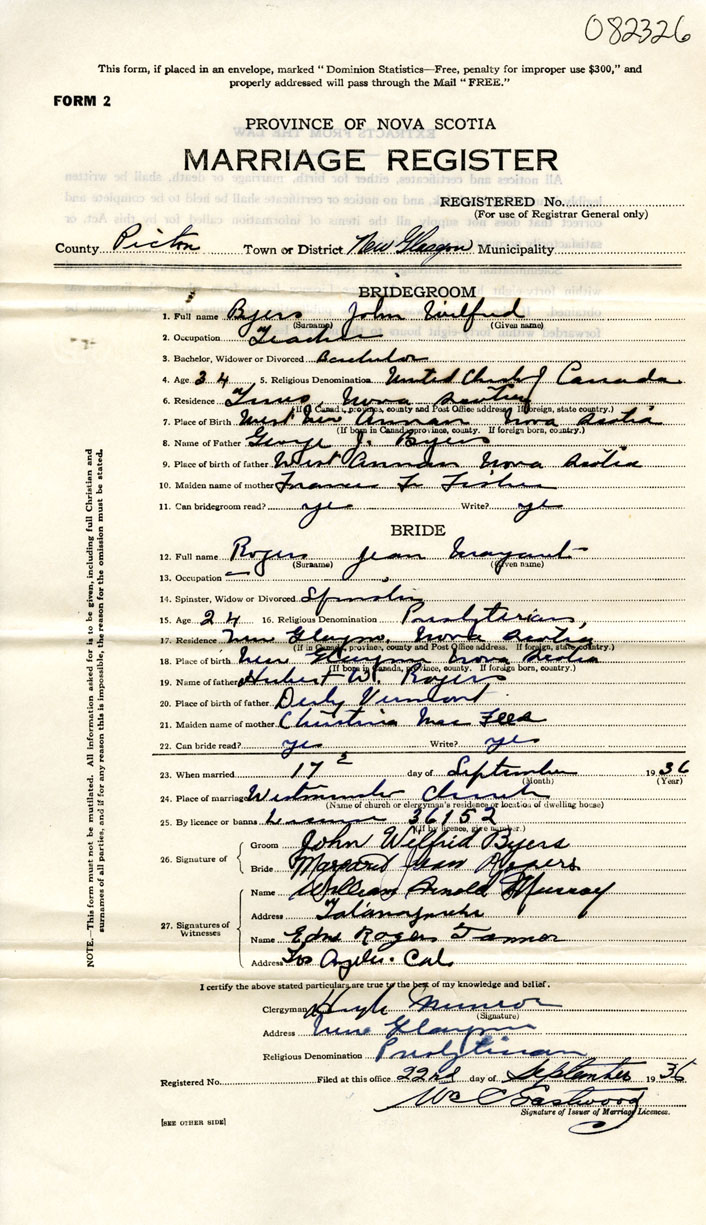 082326
This form, if placed in an envelope, marked "Dominion Statistics—Free, penalty for improper use $300," and
properly addressed will pass through the Mail "FREE."
FORM 2
PROVINCE OF NOVA SCOTIA
MARRIAGE REGISTER
REGISTERED No.
(For use of Registrar General only)
County Pictou Town or District New Glasgow Municipality
BRIDEGROOM
1. Full name Byers John Wilfred
(Surname) (Given name)
2. Occupation Teacher
3. Bachelor, Widower or Divorced Bachelor
4. Age 34 5. Religious Denomination United Church of Canada
6. Residence Truro, Nova Scotia
(If in Canada, province, county and Post Office address. If foreign, state country.)
7. Place of Birth West New Annan Nova Scotia
(If born in Canada, province, county. If foreign born, country.)
8. Name of Father George J. Byers
9. Place of birth of father West Annan Nova Scotia
10. Maiden name of mother Frances
11. Can bridegroom read? yes Write? yes
BRIDE
12. Full name Rogers Jean Margaret
(Surname) (Given name)
13. Occupation —
14. Spinster, Widow or Divorced Spinster
15. Age 24 16. Religious Denomination Presbyterian
17. Residence New Glasgow, Nova Scotia
(If in Canada, province, county and Post Office address. If foreign, state country.)
18. Place of birth New Glasgow Nova Scotia
(If born in Canada, province, county. If foreign born, country.)
19. Name of father Hubert W. Rogers
20. Place of birth of father Derby Vermont
21. Maiden name of mother Christina Mac
22. Can bride read? yes Write? yes
23. When married 17 day of September 1936
(Month) (Year)
24. Place of marriage Westminster Church
(Name of church or clergyman's residence or location of dwelling house)
25. By licence or banns License 36152
(If by licence, give number.)
26. Signature of
Groom John Wilfrid Byers
Bride Margaret Jean Rogers
27. Signatures of Witnesses
Name William Arnold Murray
Address Tatamagouche
Name Edna Rogers Tanner
Address Los Angeles. Cal
I certify the above stated particulars are true to the best of my knowledge and belief.
Clergyman Hugh Munroe
(Signature)
Address New Glasgow
Religious Denomination Presbyterian
Registered No. Filed at this office 22nd day of September 1936
Eastwood
Signature of Issuer of Marriage Licences.
[SEE OTHER SIDE]
NOTE.—This form must not be mutilated. All information asked for is to be given, including full Christian and
surnames of all parties, and if for any reason this is impossible, the reason for the omission must be stated.